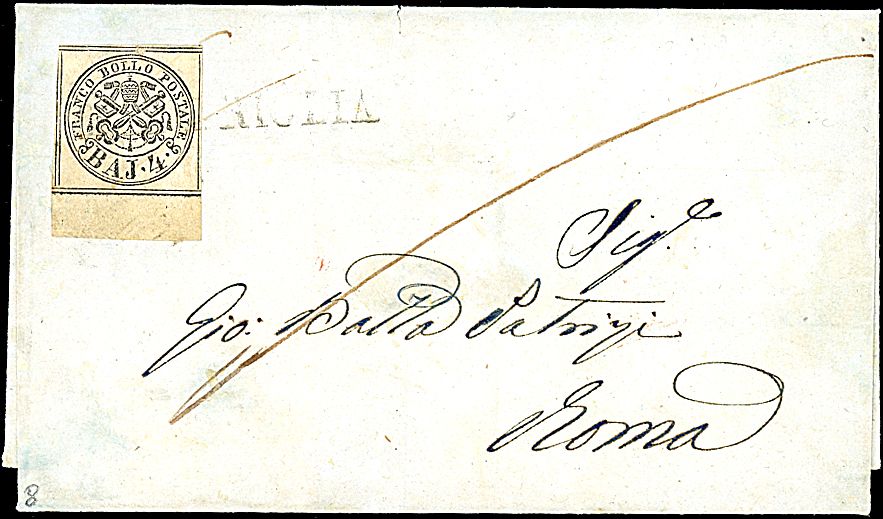 FRANCO BOLLO POSTALE
BAJ. 4.
Sig.e
Gio: Batta Patrizi
Roma
8